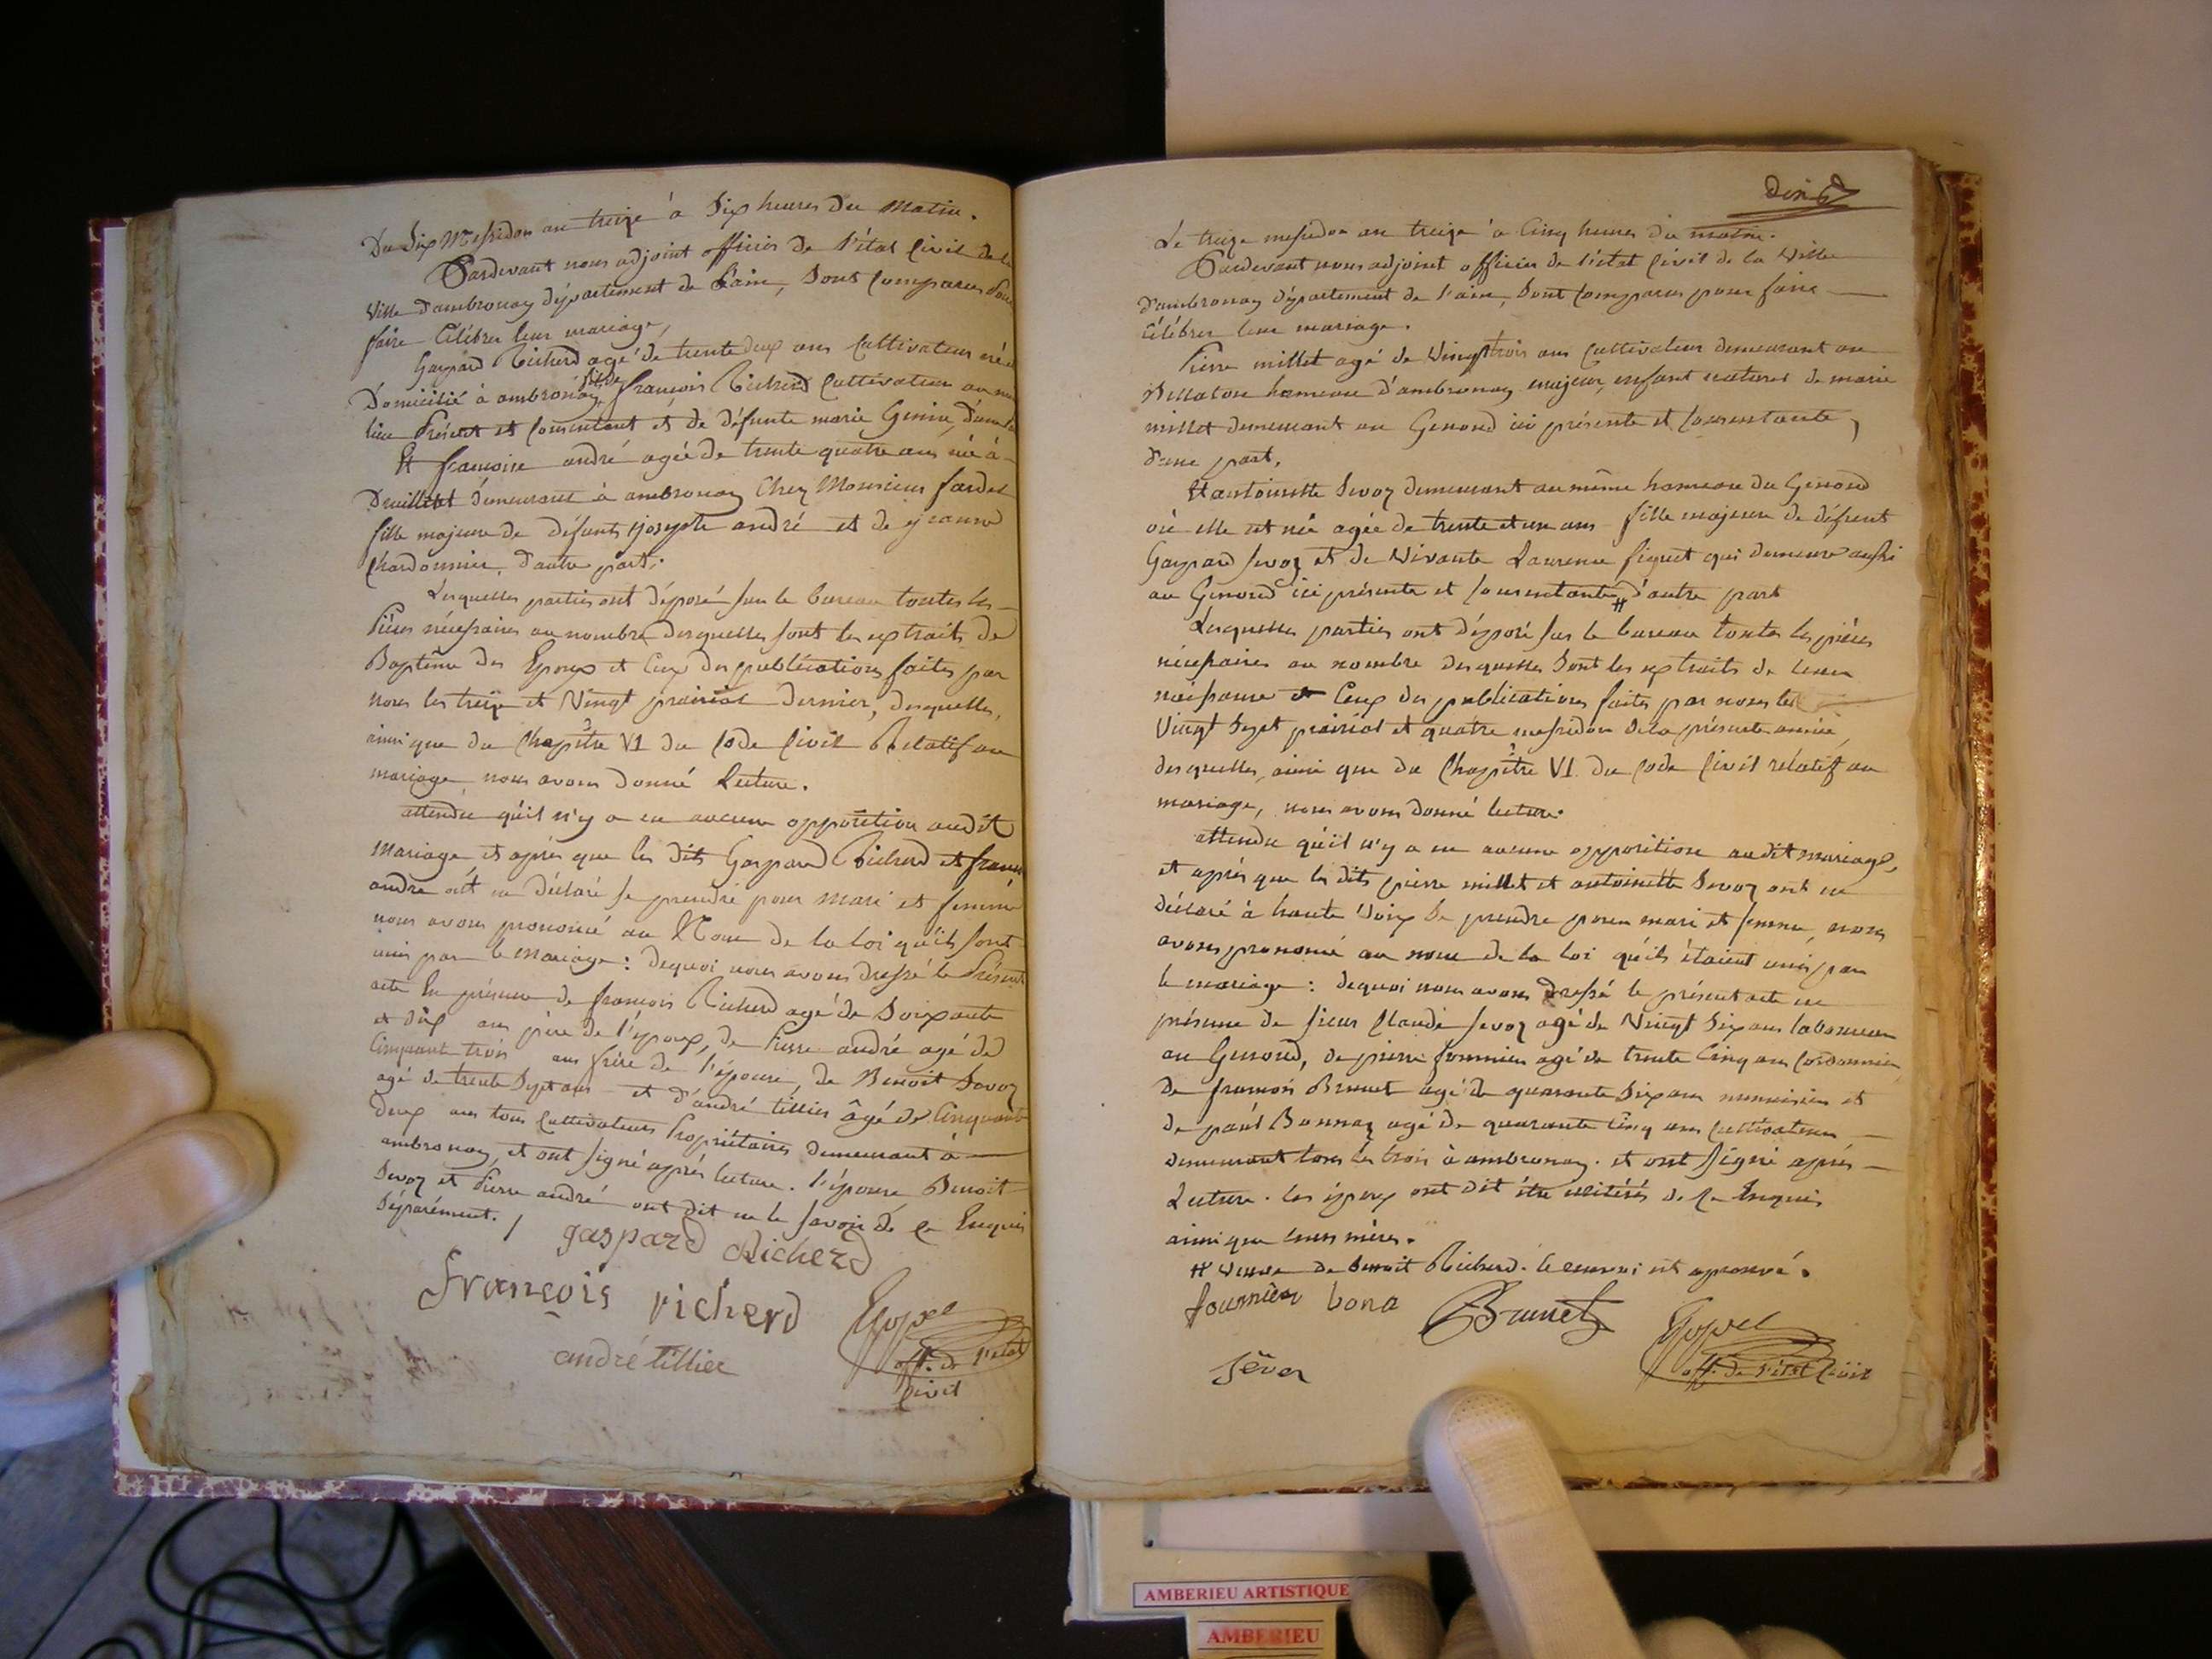 Du Six Messidor an treize à Six heures du Matin.
Pardevant nous adjoint officier de l'état Civil de la
Ville d'ambronay département de l'ain, Sont Comparus Pour
faire Célébrer leur mariage,
Gaspard Richerd agé de trente deux ans Cultivateur né et
Domicilié à ambronay, fils de françois Richerd Cultivateur au même
lieu Présent et Consentant et de défunte marie Genin, d'une
Et francoise andré agée de trente quatre ans née à
Druillet demeurant à ambronay Chez Monsieur fardel
fille majeure de défunts joseph andré et de jeanne
Chardonnier, d'autre part.
Lesquelles parties ont déposé sur le bureau toutes les
Pièces nécessaires au nombre desquelles sont les extraits de
Baptême des Epoux et Ceux des publications faites par
nous les treize et Vingt prairial dernier, desquelles,
ainsi que du Chapitre VI du Code Civil Relatif au
mariage, nous avons donné Lecture.
attendu qu'il n'y a eu aucune opposition audit
mariage, et après que les dits Gaspard Richerd et
andré ont eu déclaré se prendre pour mari et femme
nous avons prononcé au Nom de la loi qu'ils sont
unis par le Mariage : dequoi nous avons dressé le Présent
acte En présence de francois Richerd agé de Soixante
et dix ans père de l'époux, de Pierre andré agé de
Cinquante trois ans frère de l'épouse, de Benoit Sevoz
agé de trente Sept ans et d'andré tillier âgé de Cinquante
deux ans tous Cultivateurs Propriétaires demeurant à
ambronay, et ont signé après lecture. l'épouse Benoit
Sevoz et Pierre andré ont dit ne le savoir de ce Enquis
Séparément. /
gaspard Richerd
françois richerd
andré tillier
off. de l'etat
Civil
Le treize messidor an treize à Cinq heures du matin.
Pardevant nous adjoint officier de l'état Civil de la Ville
d'ambronay département de l'ain, Sont Comparus pour faire
Célébrer leur mariage.
Pierre millet agé de Vingt trois ans Cultivateur demeurant au
hameau d'ambronay, majeur, enfant naturel de marie
millet demeurant au Genoud ici présente et Consentante,
d'une part,
Et antoinette Sevoz demeurant au même hameau du Genoud
où elle est née agée de trente et un ans fille majeure de défunt
Gaspard Sevoz et de Vivante Laurence figuet qui demeure aussi
au Genoud ici présente et Consentante, # d'autre part
Lesquelles parties ont déposé sur le bureau toutes les pièces
nécessaires au nombre desquelles Sont les extraits de leur
naissance et Ceux des publications faites par nous les
Vingt Sept prairial et quatre messidor de la présente année,
desquelles, ainsi que du Chapitre VI du Code Civil rélatif au
mariage, nous avons donné lecture.
attendu qu'il n'y a eu aucune opposition audit mariage,
et après que les dits pierre millet et antoinette Sevoz ont eu
déclaré à haute Voix Se prendre pour mari et femme, nous
avons prononcé au nom de la loi qu'ils étaient unis par
le mariage : dequoi nous avons dressé le présent acte en
présence de sieur Claude Sevoz agé de Vingt Six ans laboureur
au Genoud, de pierre fournier agé de trente Cinq ans Cordonnier
de francois Brunet agé de quarante Six ans menuisier et
de paul Bonnaz agé de quarante Cinq ans Cultivateur
demeurant tous les trois à ambronay. et ont Signé après
Lecture. les époux ont dit être illitérés de ce Enquis
ainsi que leurs mères.
# Veuve de Benoit Richerd. le renvoi est aprouvé.
fournier bona Brunet
Sevoz
off. de l'état Civil
AMBERIEU ARTISTIQUE
AMBERIEU